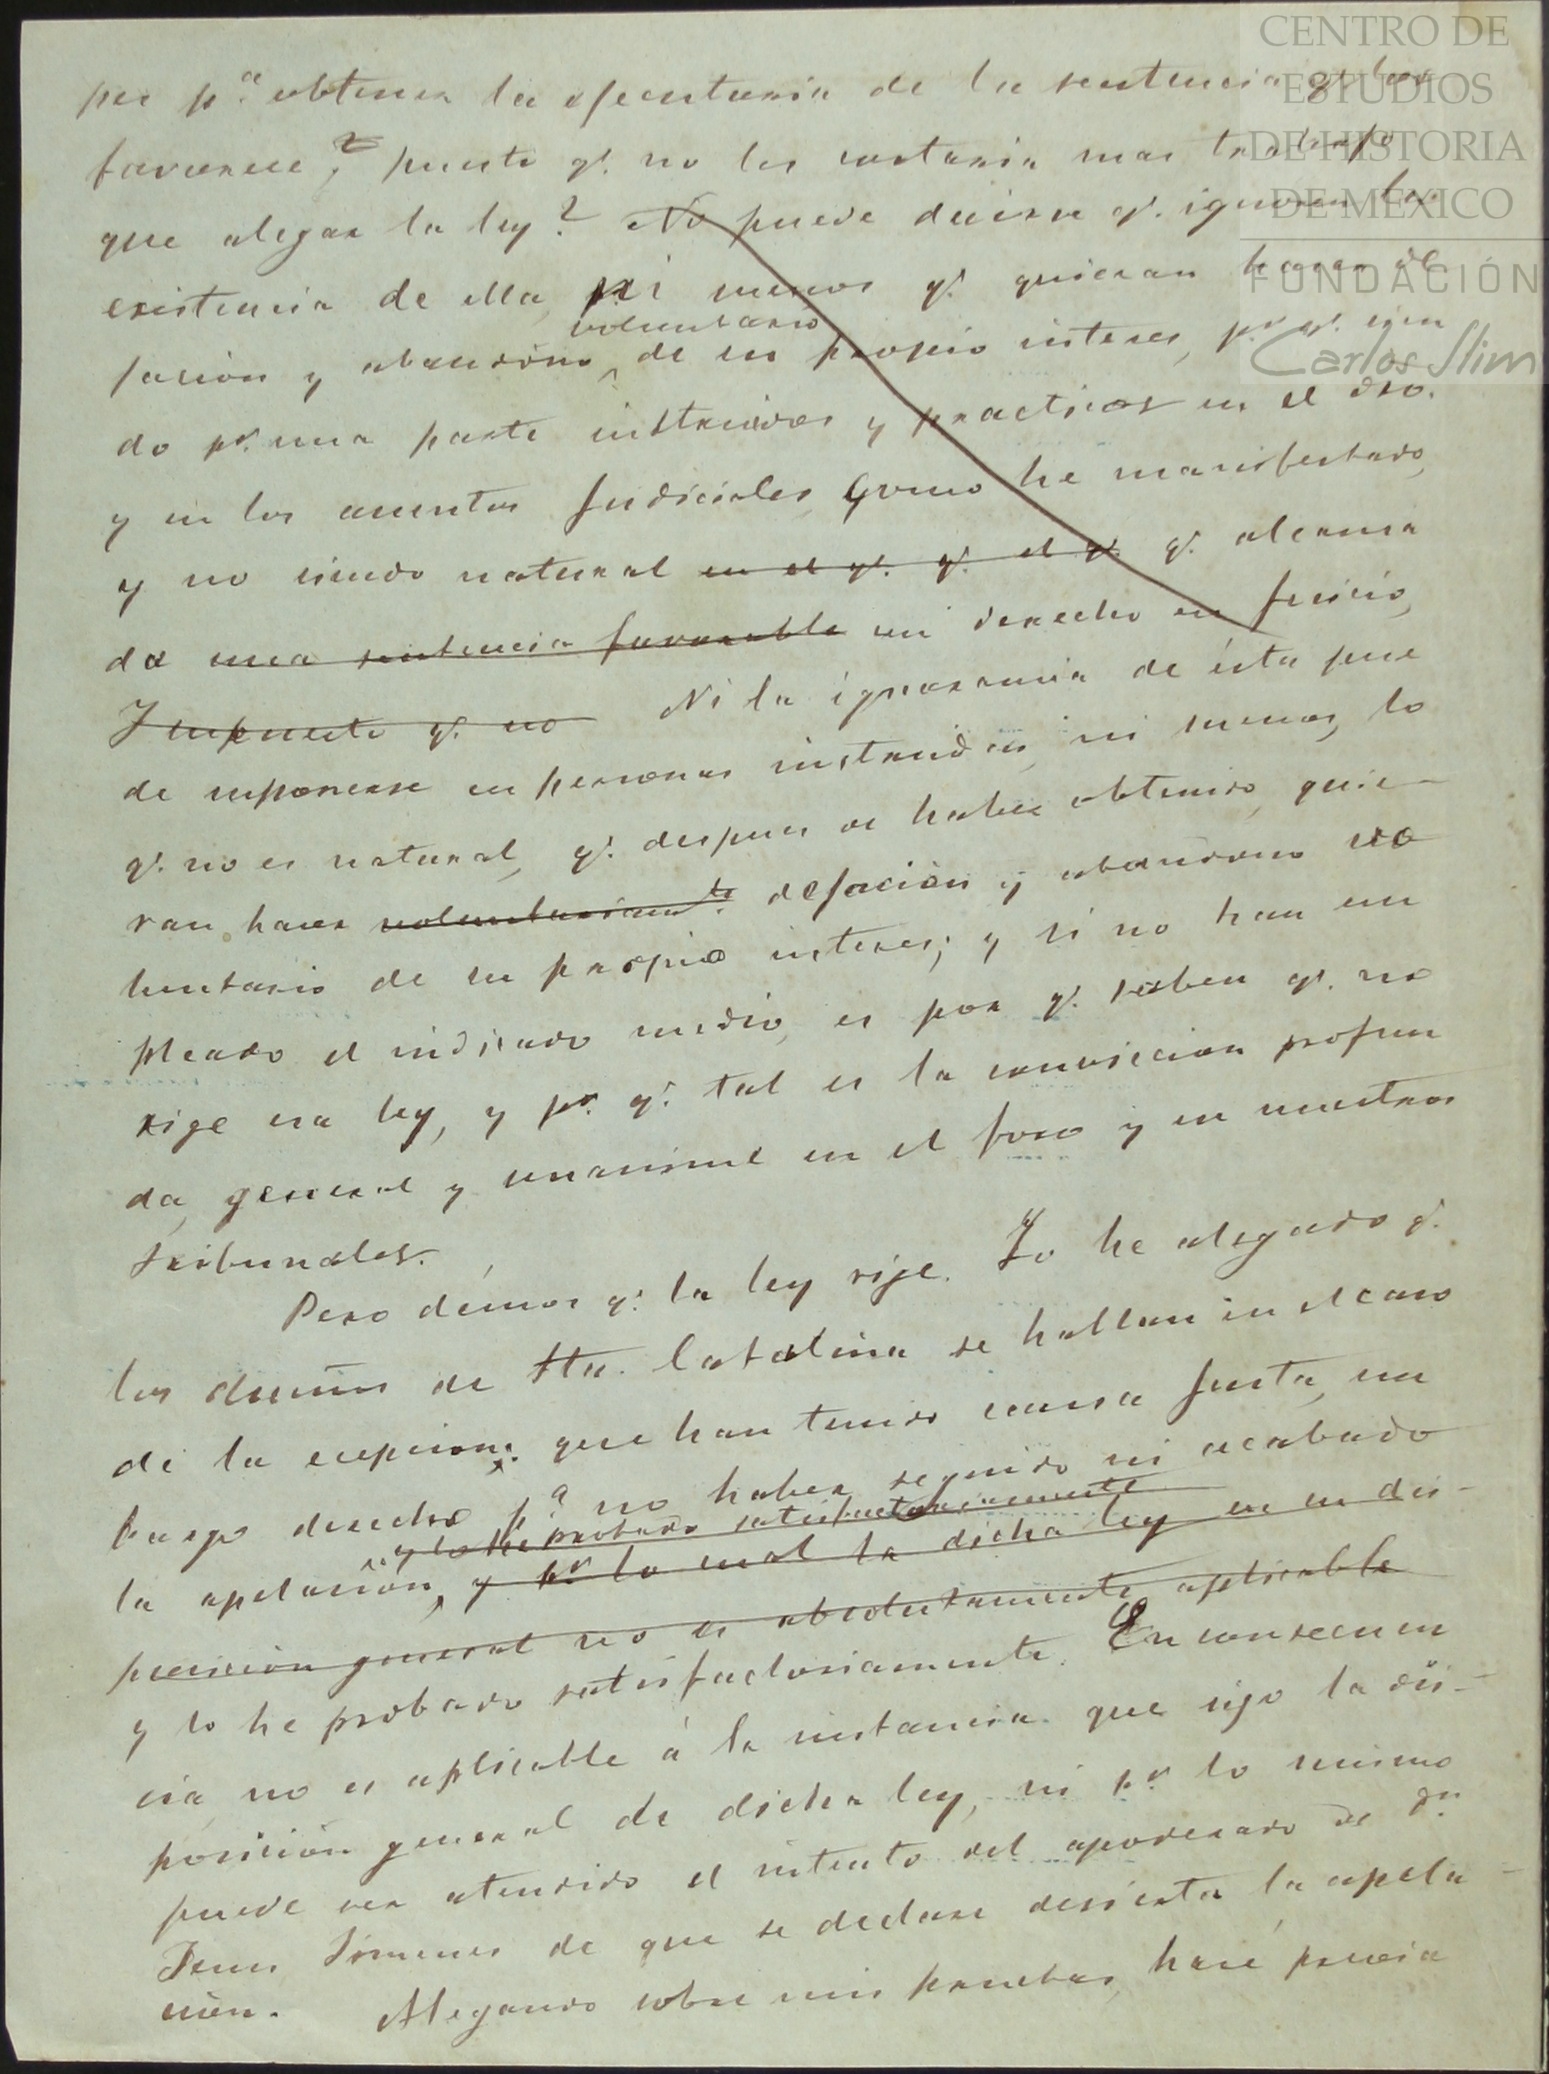 per p.ª obtener la ejecutoria de la sentencia q.e les
favorece, puesto q.e no les costaria mas trabajo
que alegar la ley? No puede decirse q.e ignoren la
existencia de ella, ni menos q.e quieran hacer de
voluntario
jacion y abandono de su propio interes, p.r q.e sien
do p.r una parte instruidos y practicos en el dro.
y en los asuntos judiciales, como he manifestado,
y no siendo natural en el q.e q.e el q.e q.e alcanza
da una sentencia favorable un derecho en juicio,
Impuesto q.e no Ni la ignorancia de ésta pue
de suponerse en personas instruidas, ni menos, lo
q.e no es natural, q.e despues de haber obtenido, quie-
ran hacer voluntariam.te dejacion y abandono vo
luntario de su propio interes; y si no han em
pleado el indicado medio, es por q.e saben q.e no
rige esa ley, y p.r q.e tal es la conviccion profun
da, general y unanime en el foro y en nuestros
tribunales.
Pero démos q.e la ley rije. Yo he alegado q.e
los dueños de Sta. Catalina se hallan en el caso
de la ecepcion: que han tenido causa justa, em
bargo derecho p.ª no haber seguido ni acabado
y lo he probado satisfactoriamente
la apelacion, y p.r lo cual la dicha ley en su dis-
posicion general no es absolutamente aplicable
y lo he probado satisfactoriamente. En consecuen
cia, no es aplicable á la instancia que sigo la dis-
posicion general de dicha ley, ni p.r lo mismo
puede ser atendido el intento del apoderado de D.n
Jesus Jimenes de que se declare desierta la apela-
cion. Alegando sobre mis pruebas, haré precia
CENTRO DE
ESTUDIOS
DE HISTORIA
DE MEXICO
FUNDACIÓN
Carlos Slim